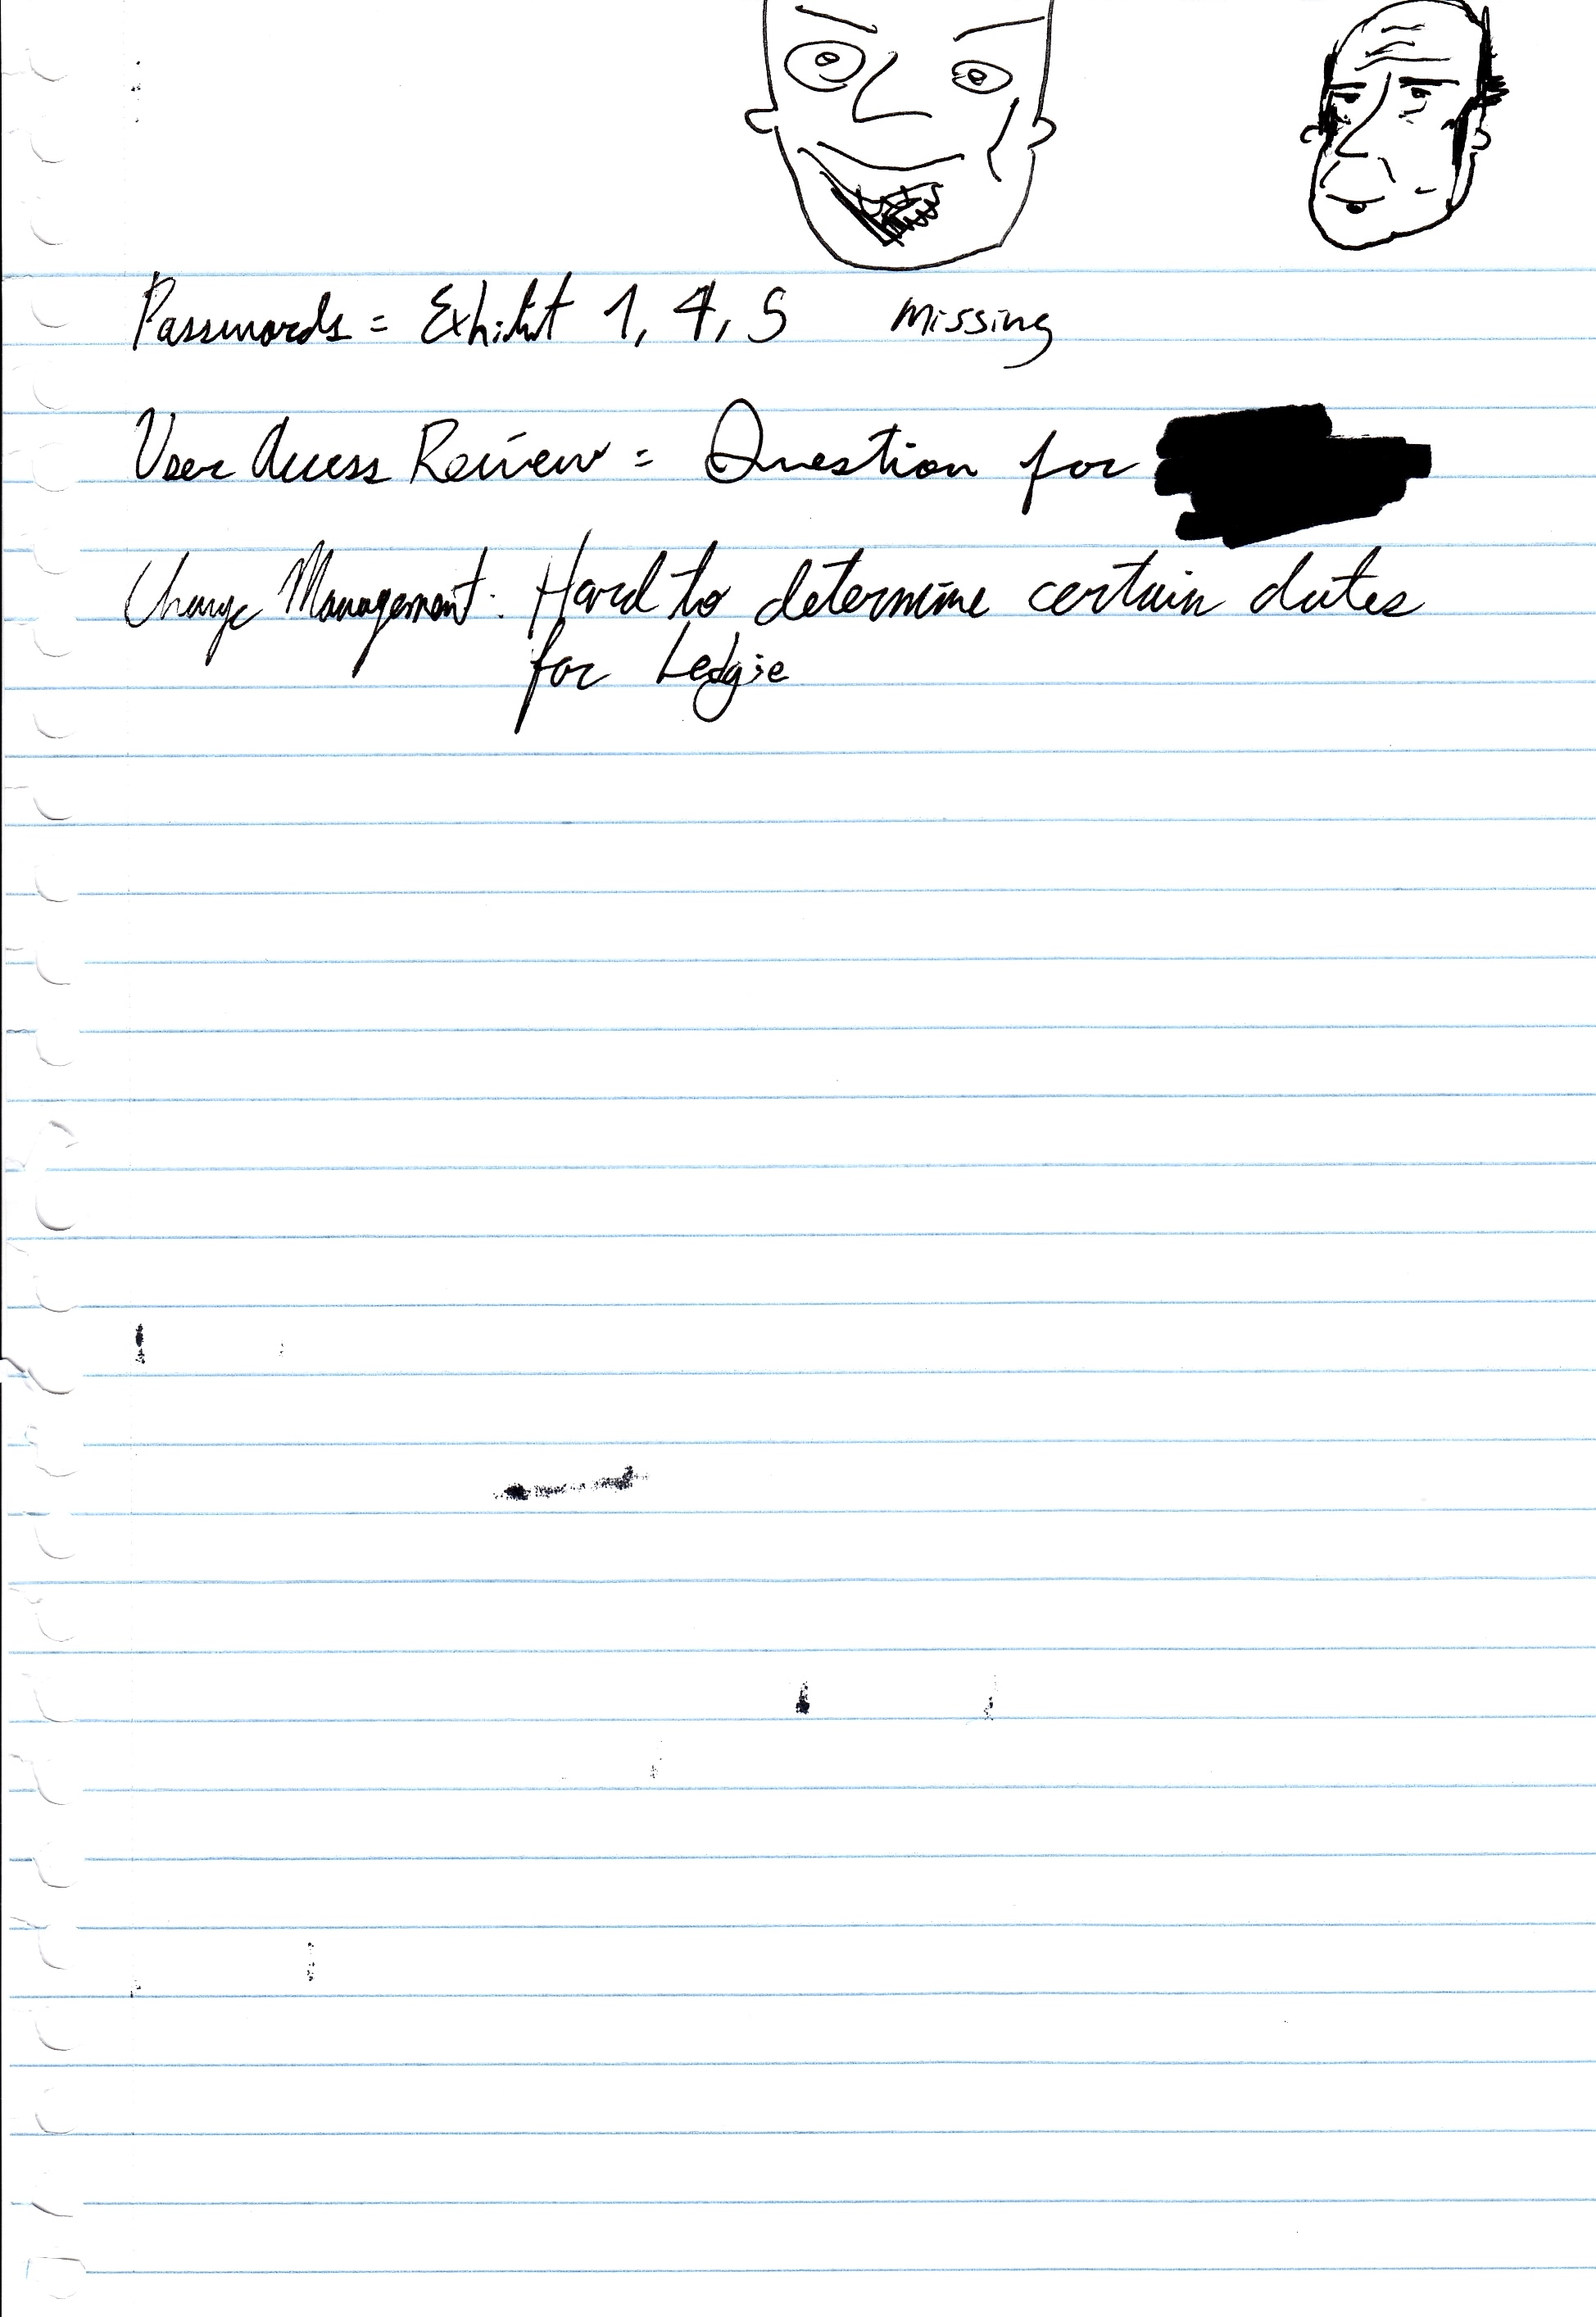 Passwords = Exhibit 1, 4, 5 missing
User Access Review = Question for
Change Management: Hard to determine certain dates
for Ledgie